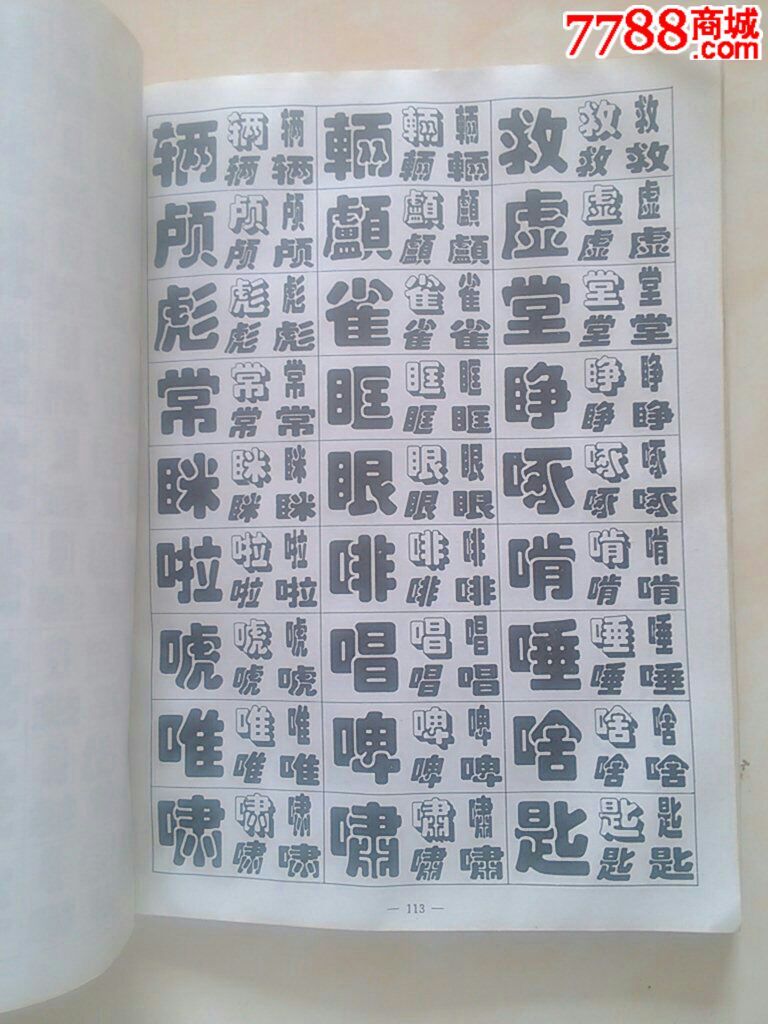 7788商城
.com
辆辆辆辆辆 輛輛輛輛輛 救救救救救
颅颅颅颅颅 顱顱顱顱顱 虚虚虚虚虚
彪彪彪彪彪 雀雀雀雀雀 堂堂堂堂堂
常常常常常 眶眶眶眶眶 睁睁睁睁睁
眯眯眯眯眯 眼眼眼眼眼 啄啄啄啄啄
啦啦啦啦啦 啡啡啡啡啡 啃啃啃啃啃
唬唬唬唬唬 唱唱唱唱唱 唾唾唾唾唾
唯唯唯唯唯 啤啤啤啤啤 啥啥啥啥啥
啸啸啸啸啸 嘯嘯嘯嘯嘯 匙匙匙匙匙
— 113 —